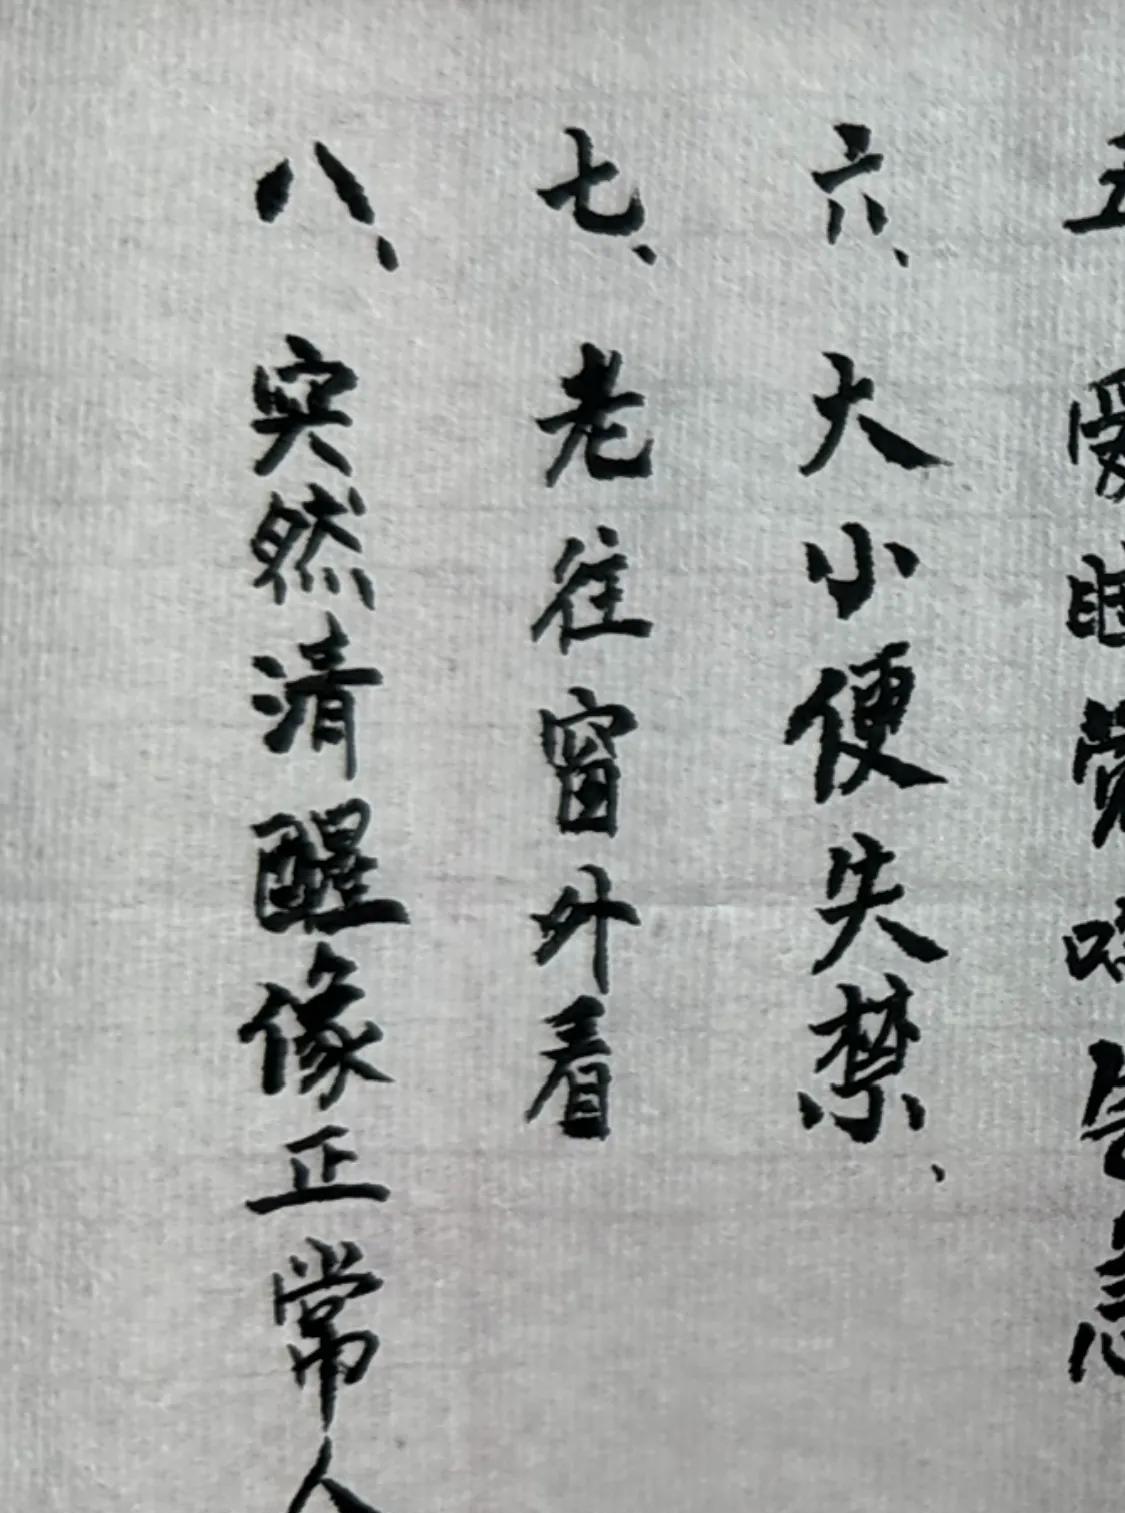 五
爱睡觉
六、大小便失禁、
七、老往窗外看
八、突然清醒像正常人